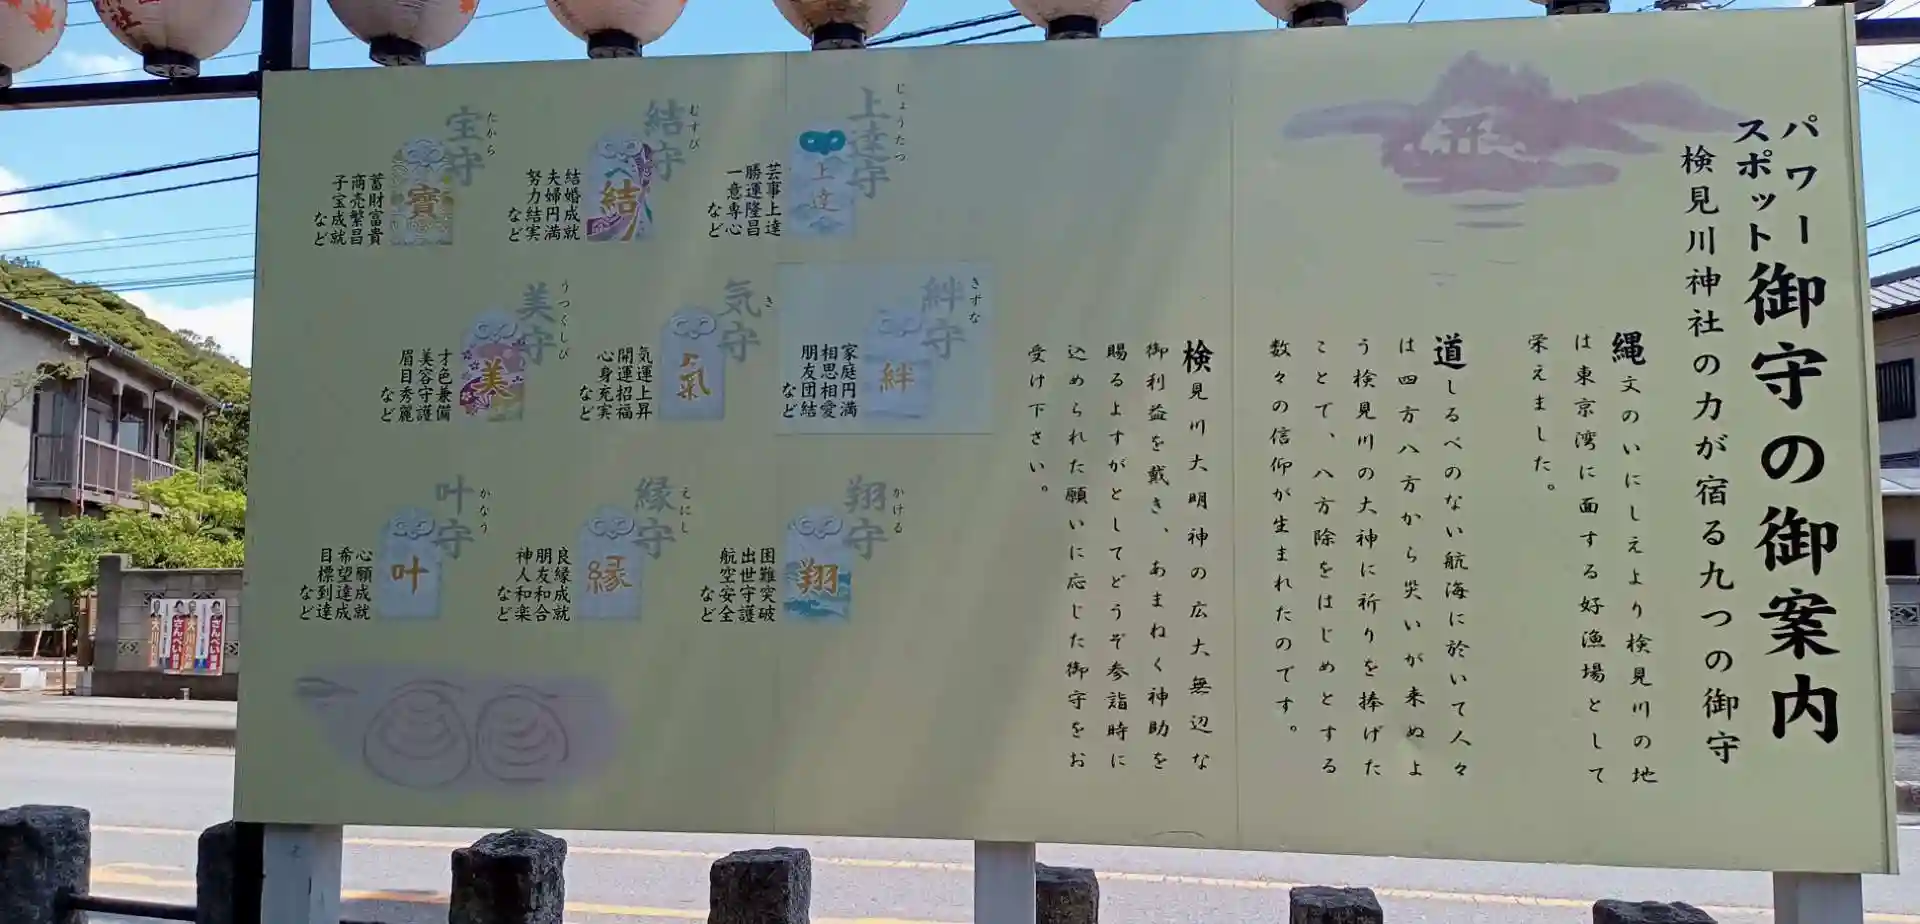 パワー
スポット御守の御案内
検見川神社の力が宿る九つの御守
縄文のいにしえより検見川の地
は東京湾に面する好漁場として
栄えました。
道しるべのない航海に於いて人々
は四方八方から災いが来ぬよ
う検見川の大神に祈りを捧げた
ことで、八方除をはじめとする
数々の信仰が生まれたのです。
検見川大明神の広大無辺な
御利益を戴き、あまねく神助を
賜るよすがとしてどうぞ参詣時に
込められた願いに応じた御守をお
受け下さい。
じょうたつ
上達守
上達
芸事上達
勝運隆昌
一意専心
など
むすび
結守
結
結婚成就
夫婦円満
努力結実
など
たから
宝守
寶
蓄財富貴
商売繁昌
子宝成就
など
きずな
絆守
絆
家庭円満
相思相愛
朋友団結
など
き
気守
氣
気運上昇
開運招福
心身充実
など
うつくしび
美守
美
才色兼備
美容守護
眉目秀麗
など
かける
翔守
翔
困難突破
出世守護
航空安全
など
えにし
縁守
縁
良縁成就
朋友和合
神人和楽
など
かなう
叶守
叶
心願成就
希望達成
目標到達
など
さんぺい
大川